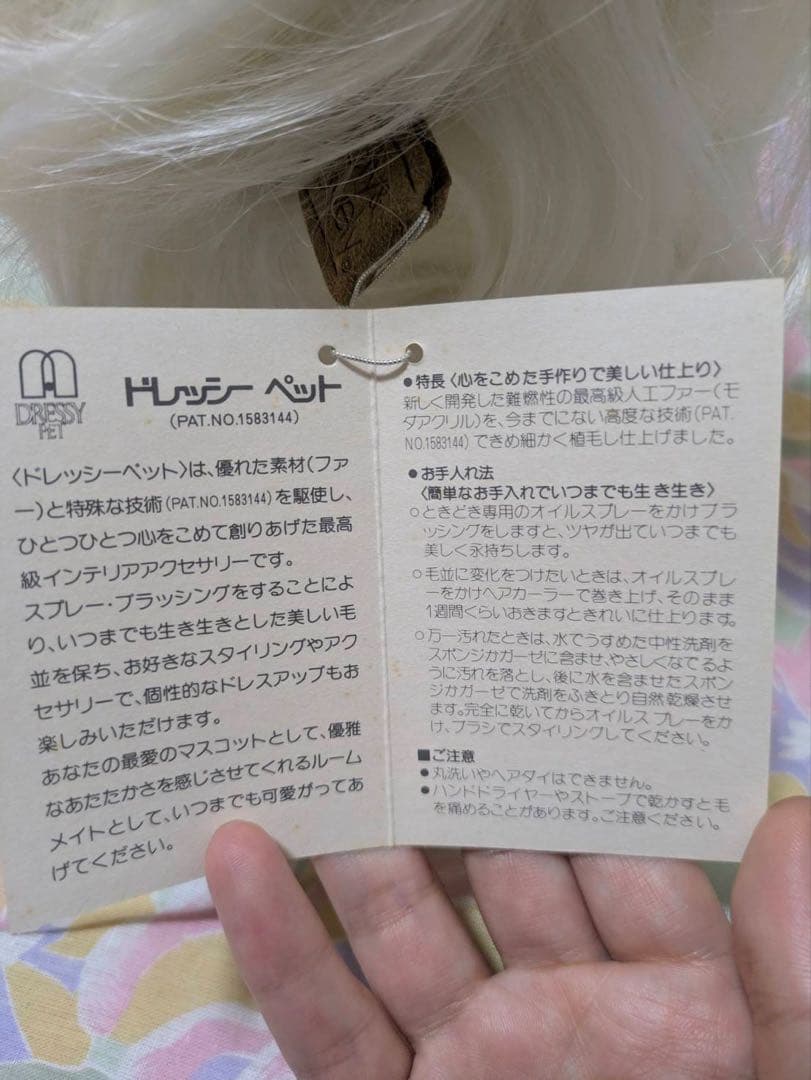 DRESSY
PET
ドレッシー ペット
(PAT.NO.1583144)
〈ドレッシーペット〉は、優れた素材(ファ
ー)と特殊な技術(PAT.NO.1583144)を駆使し、
ひとつひとつ心をこめて創りあげた最高
級インテリアアクセサリーです。
スプレー・ブラッシングをすることによ
り、いつまでも生き生きとした美しい毛
並を保ち、お好きなスタイリングやアク
セサリーで、個性的なドレスアップもお
楽しみいただけます。
あなたの最愛のマスコットとして、優雅
なあたたかさを感じさせてくれるルーム
メイトとして、いつまでも可愛がってあ
げてください。
●特長〈心をこめた手作りで美しい仕上り〉
新しく開発した難燃性の最高級人工ファー(モ
ダアクリル)を、今までにない高度な技術(PAT.
NO.1583144)できめ細かく植毛し仕上げました。
●お手入れ法
〈簡単なお手入れでいつまでも生き生き〉
○ときどき専用のオイルスプレーをかけブラ
ッシングをしますと、ツヤが出ていつまでも
美しく永持ちします。
○毛並に変化をつけたいときは、オイルスプレ
ーをかけヘアカーラーで巻き上げ、そのまま
1週間くらいおきますときれいに仕上ります。
○万一汚れたときは、水でうすめた中性洗剤を
スポンジかガーゼに含ませ、やさしくなでるよ
うに汚れを落とし、後に水を含ませたスポン
ジかガーゼで洗剤をふきとり自然乾燥させ
ます。完全に乾いてからオイルスプレーをか
け、ブラシでスタイリングしてください。
■ご注意
●丸洗いやヘアダイはできません。
●ハンドドライヤーやストーブで乾かすと毛
を痛めることがあります。ご注意ください。